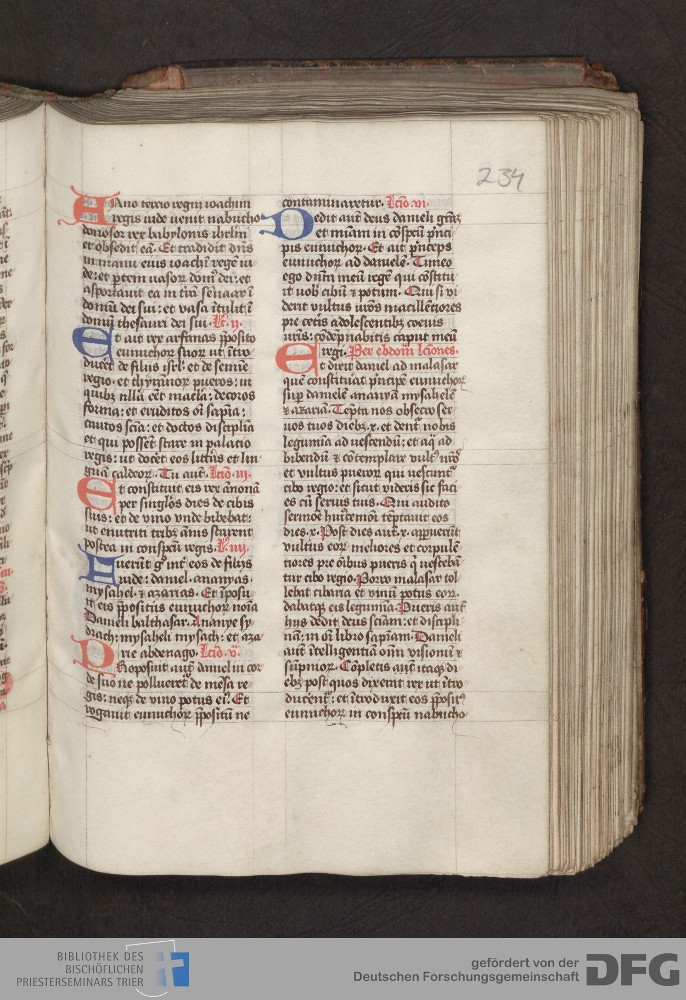 234
Anno tercio regni ioachim
regis iude uenit nabucho
donosor rex babylonis ihrlm̄
et obsedit eā. Et tradidit dn̄s
in manu eius ioachī regē iu
de: et ꝑtem uasoꝝ dom̄ dei: et
asportauit ea in t̄rā sennaar ī
domū dei sui: et uasa ītulit ī
domū thesauri dei sui. Lc̄. ij.
Et ait rex arfanas p̄posito
eunuchoꝝ suoꝝ ut ītro
ducēt de filiis isrl̄: et de semīe
regio. et thyrānoꝝ pueros: in
quibꝫ nlla eēt macla: decoros
forma: et eruditos oī sapīa:
cautos sc̄ia: et doctos disciplīa
et qui possent stare in palatio
regis: ut docēt eos litt̄as et lin
guā caldeoꝝ. Tu aut̄. Lc̄io. iij.
Et constituit eis rex ānonā
per singlos dies de cibis
suis: et de uino vnde bibebat:
ut enutriti trībꝫ ānis starent
postea in conspcū regis. L̄. iiij.
Fuerūt gͦ int̄ eos de filijs
iude: daniel. ananyas.
mysahel. ⁊ azarias. Et īposu
it eis p̄positus eunuchoꝝ noīa
Danieli balthasar. Ananye sy
drach: mysaheli mysach: et aza
rie abdenago. Lc̄io. v.
Proposuit aut̄ daniel in cor
de suo ne pollueret̄ de mēsa re
gis: neqꝫ de vino potus eiꝰ. Et
rogauit eunuchoꝝ p̄positū ne
contaminaretur. Lc̄io. vi.
Dedit aut̄ deus danieli grāꝫ
et miām in cōspcū p̄nci
pis eunuchoꝝ. Et ait p̄nceps
eunuchoꝝ ad danielē. Timeo
ego dn̄m meū regē qui cōstitu
it uob̄ cibū ⁊ potum. Qui si vi
derit vultus ur̄os macillētiores
pre cet̄is adolescentibꝫ coeuis
ur̄is: cōdēpnabitis caput meū
regi. Per ebdom̄ lc̄iones.
Et dixit daniel ad malasar
quē constituat p̄nceps eunuchoꝝ
suꝑ danielē ananyā mysahelē
⁊ azariā. Tepta nos obsecro ser
uos tuos diebꝫ. x. et dent̄ nobis
legumīa ad uescendū: et aq̄ ad
bibendū ⁊ cōtemplare vult̄ nr̄os
et vultus pueroꝝ qui uescunt̄
cibo regio: et sicut videris sic faci
es cū seruis tuis. Qui audito
sermōe huiꝰcemōi tēptauit eos
dies. x. Post dies aut̄. x. appuerūt
vultus eoꝝ meliores et corpulē
tiores pre oībus pueris q̄ uescebā
tur cibo regio. Porro malasar tol
lebat cibaria et vinū potus eoꝝ.
dabatqꝫ eis legumīa. Pueris aut̄
hijs dedit deus sciām: et discipli
nā: in oī libro sapīam: Danieli
aut̄ ītelligentiā oīm visionū ⁊
sūpnioꝝ. Cōpletis aut̄ itaqꝫ di
ebꝫ post quos dixerat rex ut ītro
ducent̄: et ītroduxit eos p̄positꝰ
eunuchoꝝ in conspcū nabucho
BIBLIOTHEK DES
BISCHÖFLICHEN
PRIESTERSEMINARS TRIER
gefördert von der
Deutschen Forschungsgemeinschaft
DFG